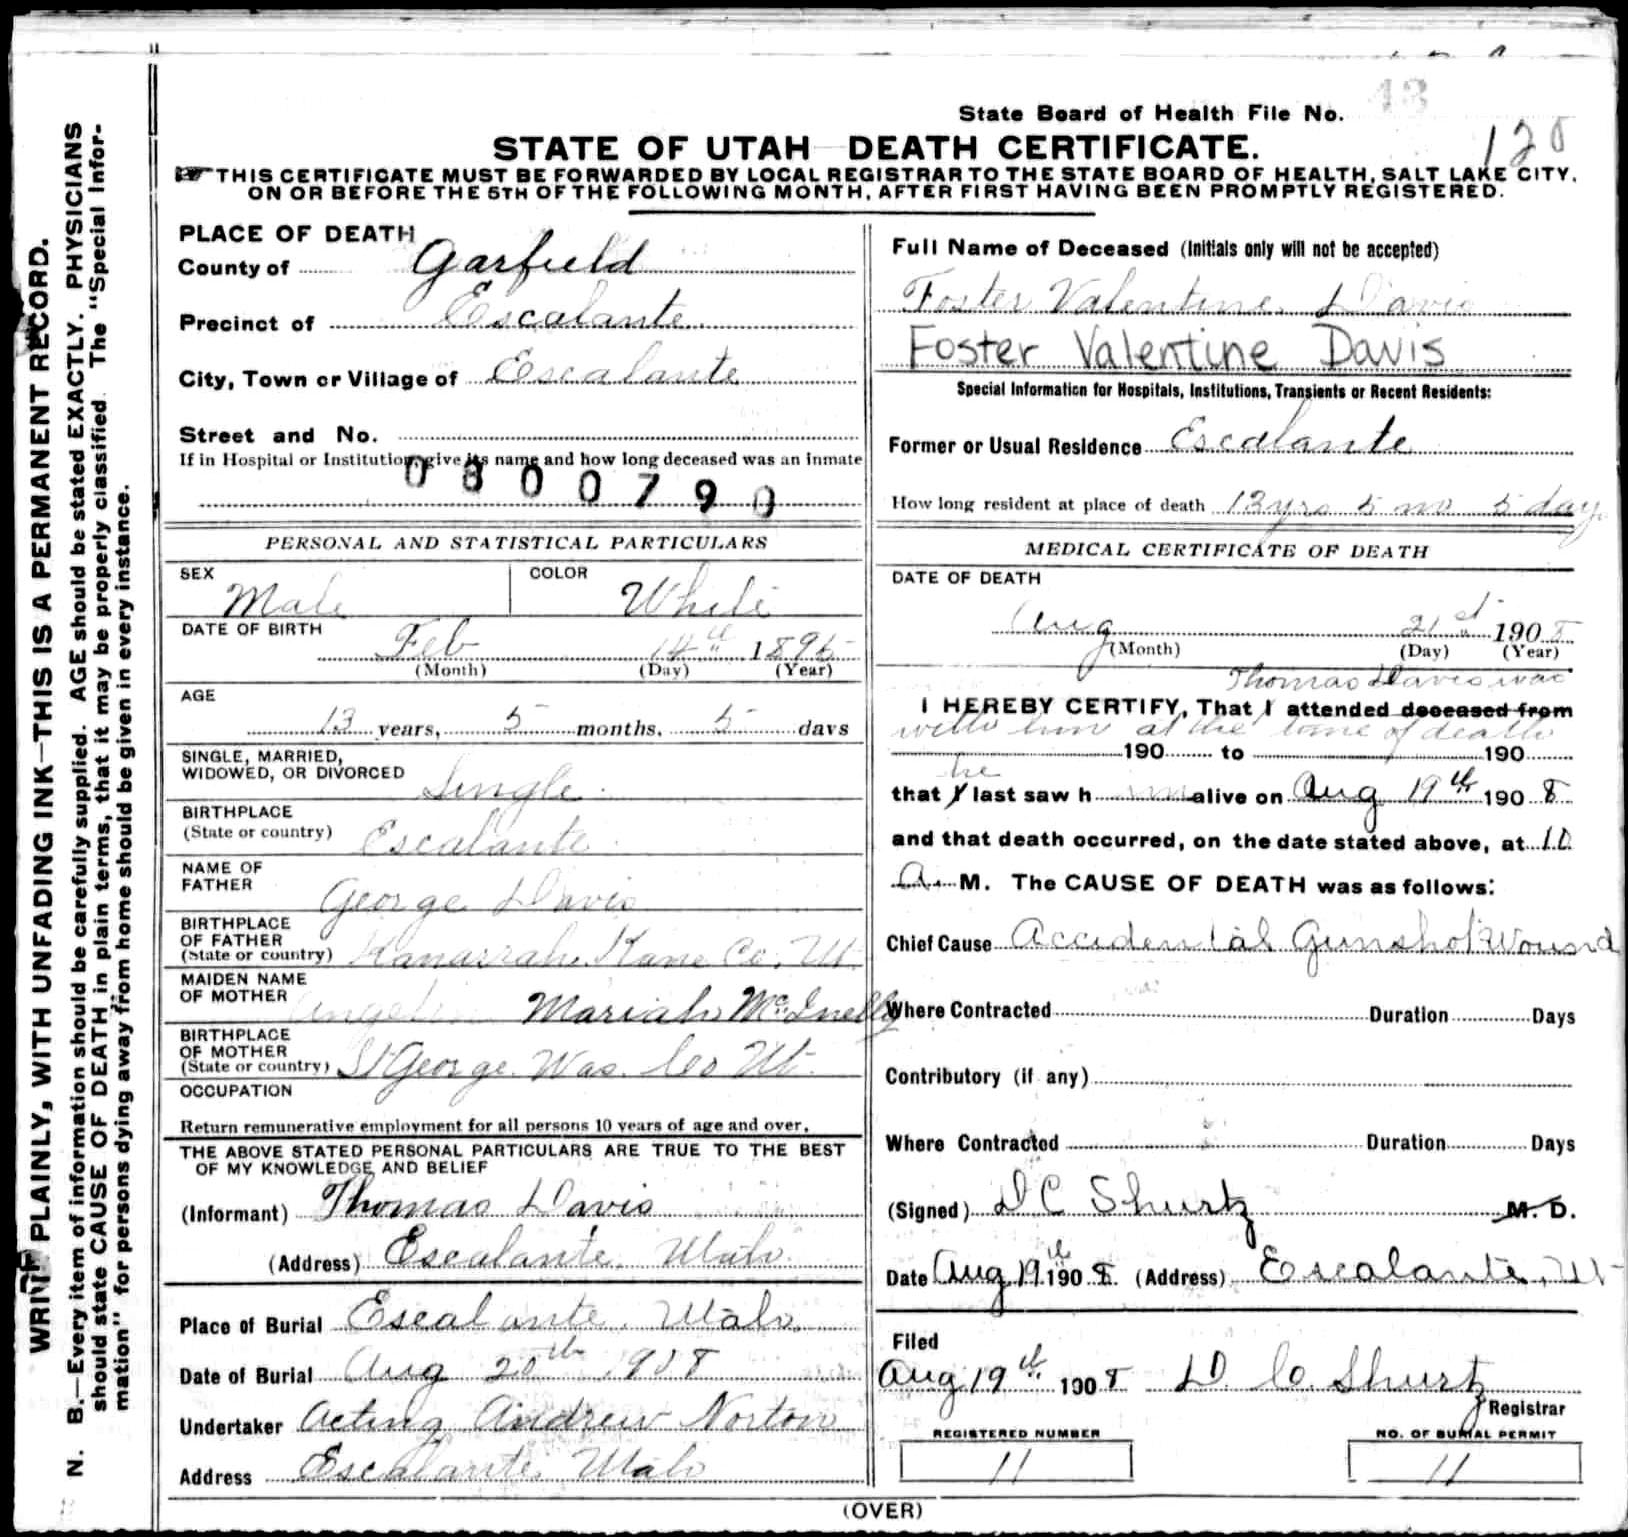 WRITE PLAINLY, WITH UNFADING INK—THIS IS A PERMANENT RECORD.
N. B.—Every item of information should be carefully supplied. AGE should be stated EXACTLY. PHYSICIANS
should state CAUSE OF DEATH in plain terms, that it may be properly classified. The "Special Infor-
mation" for persons dying away from home should be given in every instance.
State Board of Health File No. 43
128
STATE OF UTAH—DEATH CERTIFICATE.
THIS CERTIFICATE MUST BE FORWARDED BY LOCAL REGISTRAR TO THE STATE BOARD OF HEALTH, SALT LAKE CITY,
ON OR BEFORE THE 5TH OF THE FOLLOWING MONTH, AFTER FIRST HAVING BEEN PROMPTLY REGISTERED.
PLACE OF DEATH
County of Garfield
Precinct of Escalante
City, Town or Village of Escalante
Street and No.
If in Hospital or Institution, give its name and how long deceased was an inmate
0800790
PERSONAL AND STATISTICAL PARTICULARS
SEX Male COLOR White
DATE OF BIRTH
Feb 14th 1895
(Month) (Day) (Year)
AGE
13 years, 5 months, 5 days
SINGLE, MARRIED,
WIDOWED, OR DIVORCED Single
BIRTHPLACE
(State or country) Escalante
NAME OF
FATHER George Davis
BIRTHPLACE
OF FATHER
(State or country) Kanarrah, Kane Co. Ut.
MAIDEN NAME
OF MOTHER Mariah McInelly
BIRTHPLACE
OF MOTHER
(State or country) St George. Was. Co Ut.
OCCUPATION
Return remunerative employment for all persons 10 years of age and over.
THE ABOVE STATED PERSONAL PARTICULARS ARE TRUE TO THE BEST
OF MY KNOWLEDGE AND BELIEF
(Informant) Thomas Davis
(Address) Escalante, Utah.
Place of Burial Escalante, Utah.
Date of Burial Aug 20th 1908
Undertaker Acting Andrew Norton
Address Escalante Utah
Full Name of Deceased (Initials only will not be accepted)
Foster Valentine Davis
Foster Valentine Davis
Special Information for Hospitals, Institutions, Transients or Recent Residents:
Former or Usual Residence Escalante
How long resident at place of death 13 yrs 5 mo 5 days
MEDICAL CERTIFICATE OF DEATH
DATE OF DEATH
Aug 21st 1908
(Month) (Day) (Year)
Thomas Davis was
I HEREBY CERTIFY, That I attended deceased from
with him at the time of death
190 to 190
he
that I last saw h im alive on Aug 19th 1908
and that death occurred, on the date stated above, at 10
A. M. The CAUSE OF DEATH was as follows:
Chief Cause Accidental Gunshot Wound
Where Contracted Duration Days
Contributory (if any)
Where Contracted Duration Days
(Signed) D C Shurtz M. D.
Date Aug 19th 1908. (Address) Escalante, Ut
Filed
Aug 19th 1908 D. C. Shurtz
Registrar
REGISTERED NUMBER
11
NO. OF BURIAL PERMIT
11
(OVER)